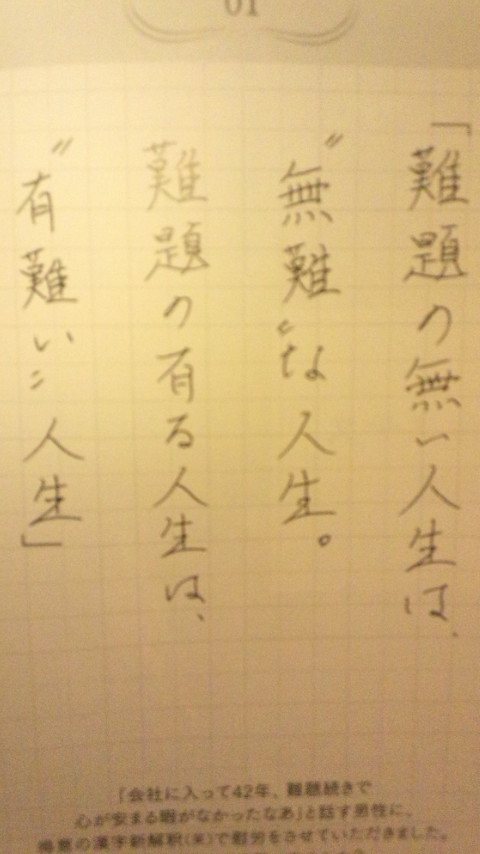 01
「難題の無い人生は、
〝無難〟な人生。
難題の有る人生は、
〝有難い〟人生」
「会社に入って42年、難題続きで
心が安まる暇がなかったなあ」と話す男性に、
得意の漢字新解釈(米)で慰労をさせていただきました。